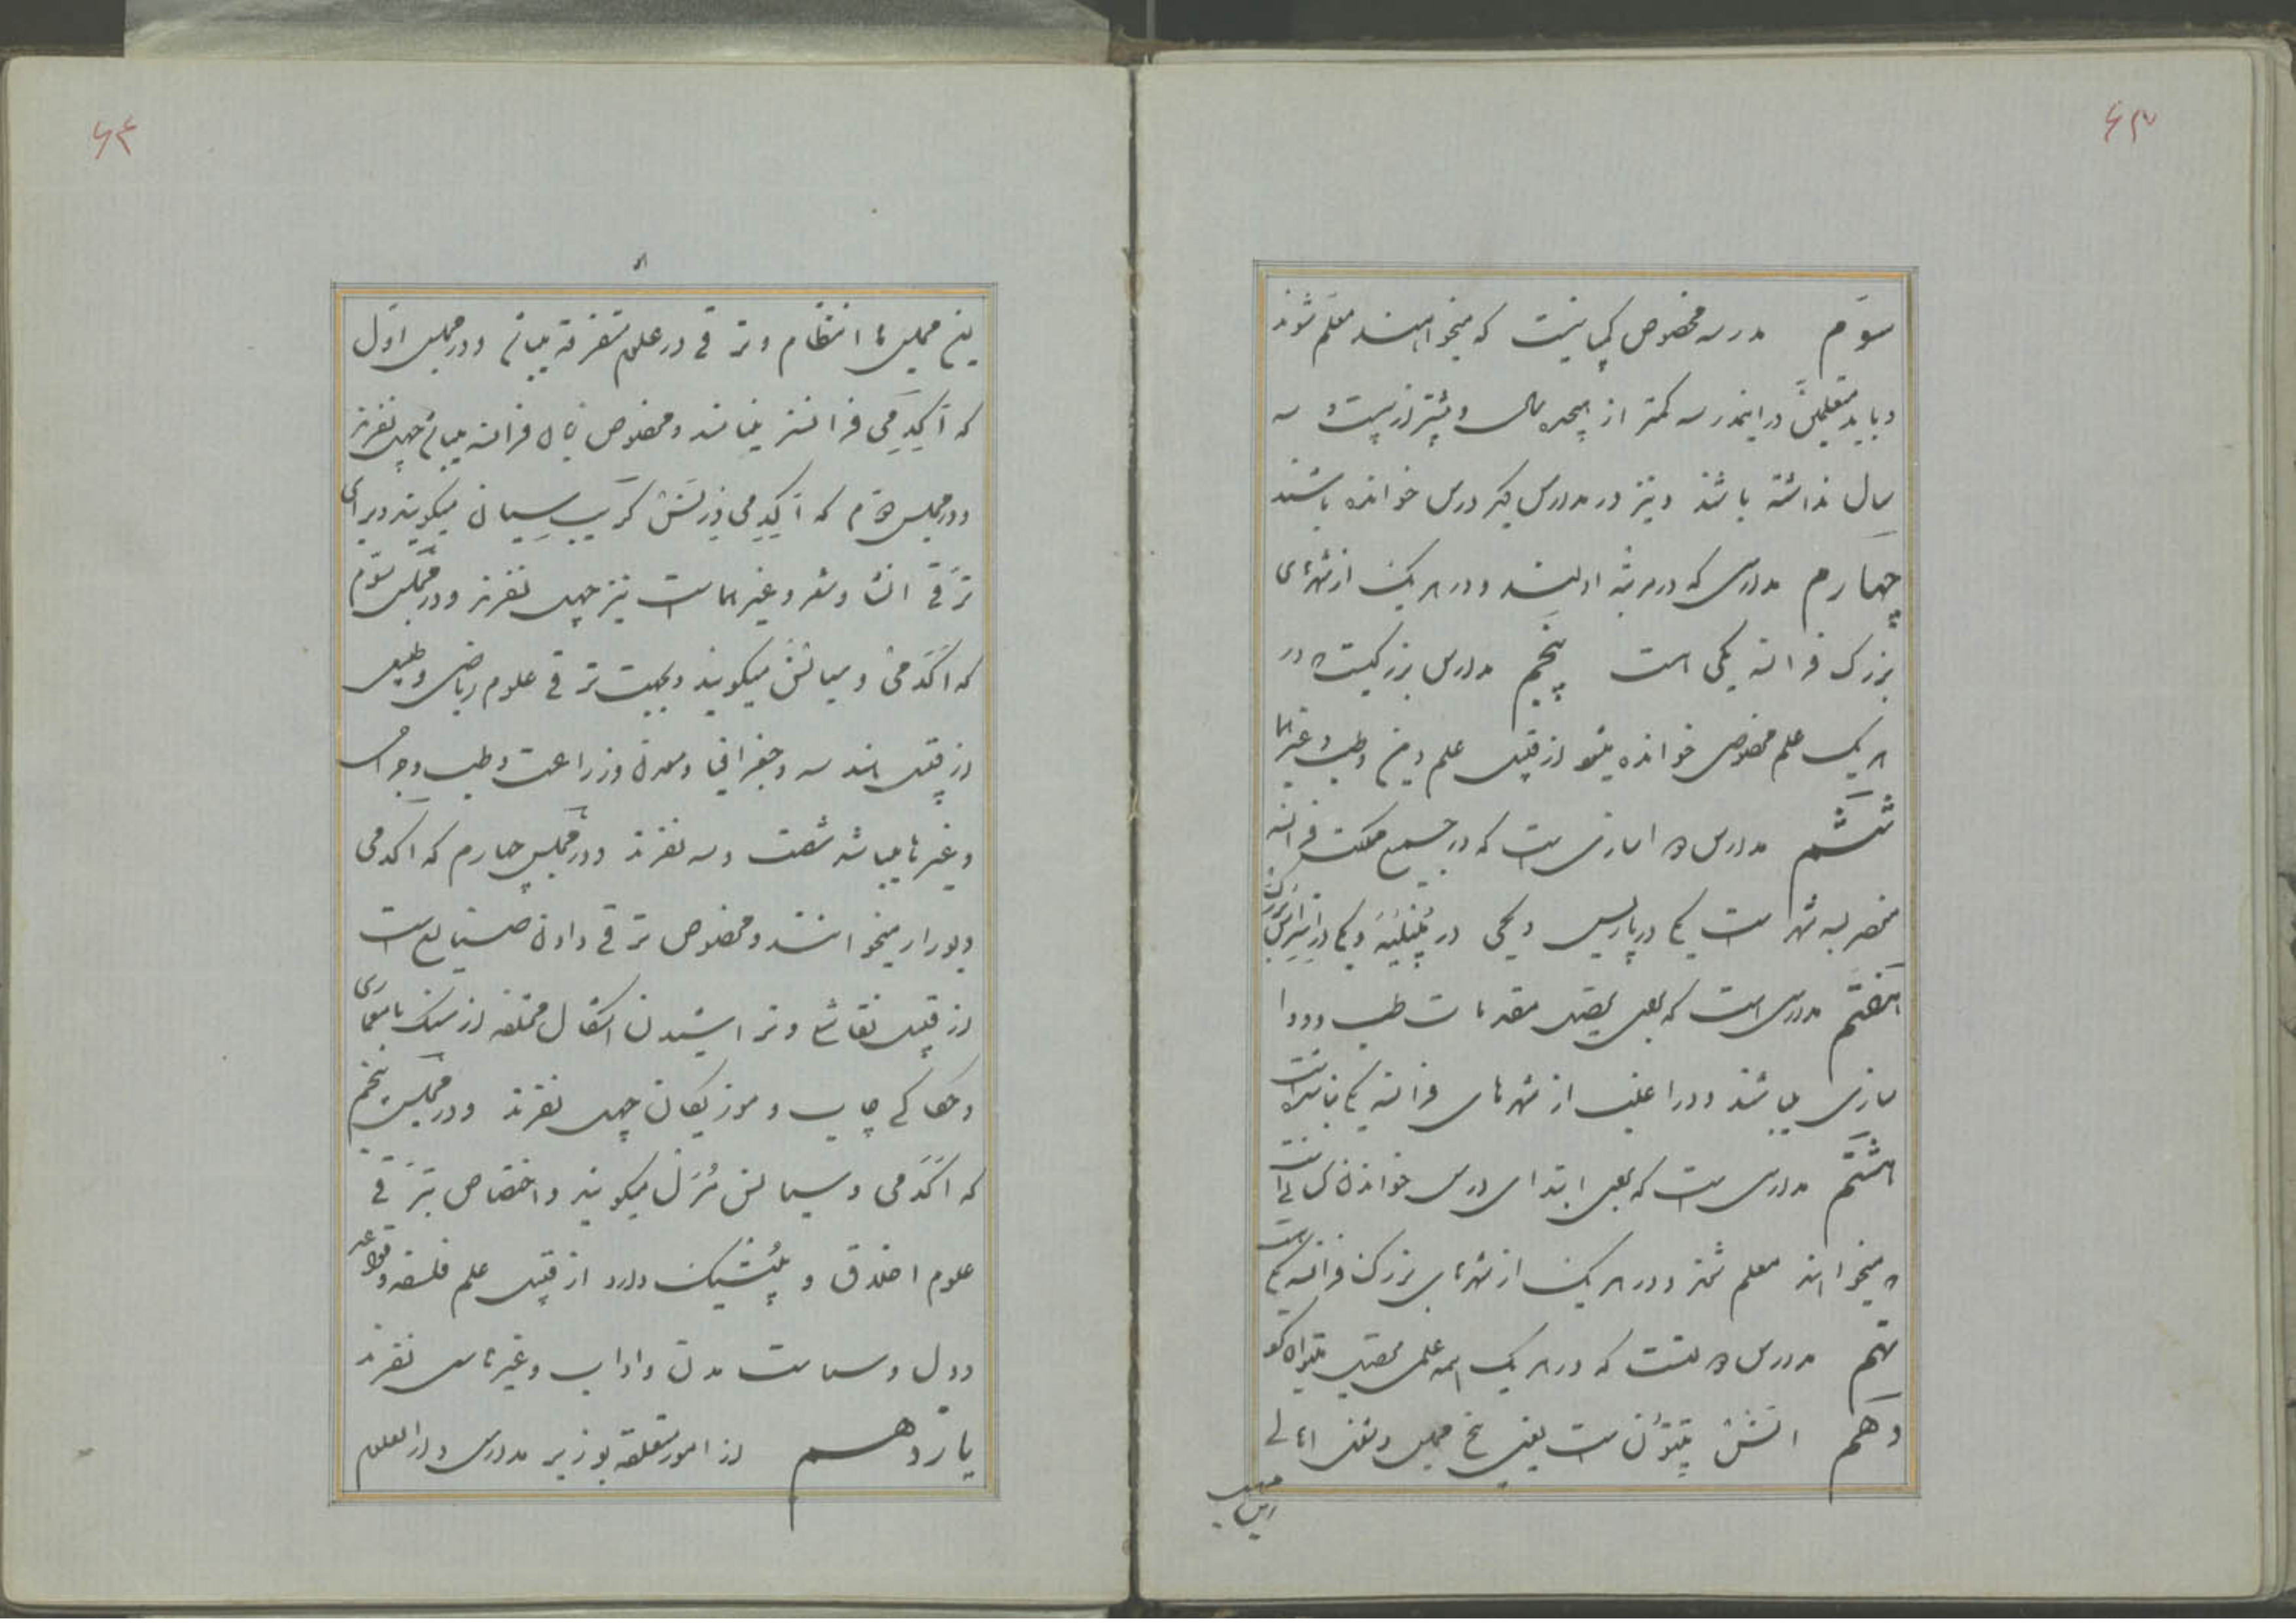 ۶۳
سوّم مدرسه مخصوص کسانیست که میخواهند معلّم شوند
و باید متعلمین در اینمدرسه کمتر از هیجده سال و بیشتر از بیست و سه
سال نداشته باشند و نیز در مدارس دیگر درس خوانده باشند
چهارم مدارسی که در مرتبه اولند و در هر یک از شهرهای
بزرک فرانسه یکی است پنجم مدارس بزرکیست که در
هر یک علم مخصوصی خوانده میشود از قبیل علم دین و طب و غیرهما
ششم مدارس دواسازی است که در جمیع مملکت فرانسه
منحصر بسه شهر است یکی در پاریس و یکی در مُنپلیه و یکی در
هفتم مدارسی است که بعهد تحصیل مقدمات طب و دوا
سازی میباشند و در اغلب از شهرهای فرانسه یکی بنا شده است
هشتم مدارسی است که بعهد ابتدای درس خواندن کسانی است
که میخواهند معلم شوند و در هر یک از شهرهای بزرک فرانسه یکی است
نهم مدارس که در هر یک همه علمی تحصیل میتوان کرد
دهم انستیتوی است یعنی پنج مجلس
۶۴
پنج مجلس با انتظام و ترقی در علوم متفرقه میباشد و در مجلس اوّل
که آکدمی فرانسز مینامند و مخصوص زبان فرانسه میباشد چهل نفرند
و در مجلس دوّم که آکدمی دزنسکریپسیان میگویند و برای
ترقی انشاء و شعر و غیرهما است نیز چهل نفرند و در مجلس سوّم
که اکدمی دسیانس میگویند و بجهت ترقی علوم ریاضی و طبیعی
از قبیل هندسه و جغرافیا و معدن و زراعت و طب و جراحی
و غیرها میباشد شصت و سه نفرند و در مجلس چهارم که اکدمی
دبوزار میخوانند و مخصوص ترقی دادن صنایع است
از قبیل نقاشی و تراشیدن اشکال مختلفه از سنک یا معماری
و حکاکی چاپ و موزیکان چهل نفرند و در مجلس پنجم
که اکدمی دسیانس مُرَل میگویند و اختصاص بترقی
علوم اخلاق و پلتیک دارد از قبیل علم فلسفه و قواعد
دول و سیاست مدن و اداب و غیرها سی نفرند
یازدهم از امور متعلقه بوزیر مدارس و دارالعلوم